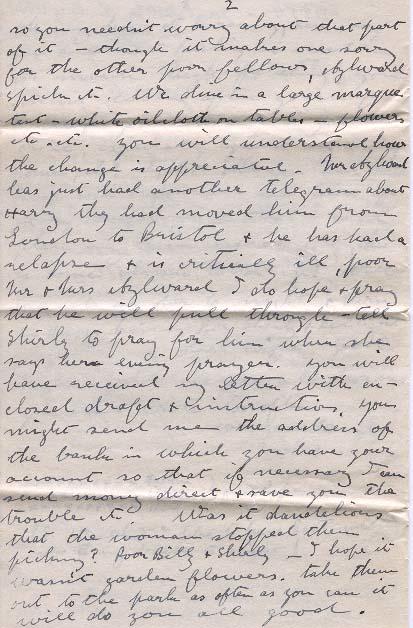 2
so you needn't worry about that part
of it – though it makes one sorry
for the other poor fellows, Aylward
Spick etc. We dine in a large marquee
tent – white oilcloth on tables – flowers
etc. etc. you will understand how
the change is appreciated. Mr Aylward
has just had another telegram about
Harry they had moved him from
London to Bristol & he has had a
relapse & is critically ill, poor
Mr & Mrs Aylward I do hope & pray
that he will pull through – tell
Shirly to pray for him when she
says her evening prayer. You will
have received my letter with en-
closed draft & instruction. You
might send me the address of
the bank in which you have your
account so that if necessary I can
send money direct & save you the
trouble etc. Was it dandelions
that the woman stopped them
picking? Poor Billy & Shirly – I hope it
wasn't garden flowers. take them
out to the park as often as you can it
will do you all good.